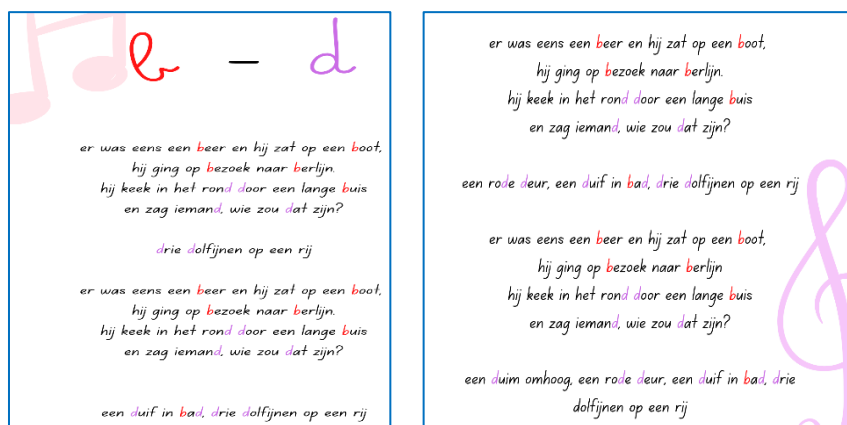 b – d
er was eens een beer en hij zat op een boot,
hij ging op bezoek naar berlijn.
hij keek in het rond door een lange buis
en zag iemand, wie zou dat zijn?
drie dolfijnen op een rij
er was eens een beer en hij zat op een boot,
hij ging op bezoek naar berlijn.
hij keek in het rond door een lange buis
en zag iemand, wie zou dat zijn?
een duif in bad, drie dolfijnen op een rij
er was eens een beer en hij zat op een boot,
hij ging op bezoek naar berlijn.
hij keek in het rond door een lange buis
en zag iemand, wie zou dat zijn?
een rode deur, een duif in bad, drie dolfijnen op een rij
er was eens een beer en hij zat op een boot,
hij ging op bezoek naar berlijn
hij keek in het rond door een lange buis
en zag iemand, wie zou dat zijn?
een duim omhoog, een rode deur, een duif in bad, drie
dolfijnen op een rij